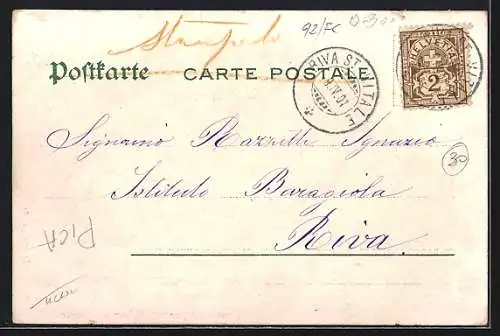 Stempel
92/FC
Postkarte CARTE POSTALE
RIVA ST. VITALE
IV.01
HELVETIA
2
Signorino Razzetti Ignazio
Istituto Baragiola
Riva.
30
PICA